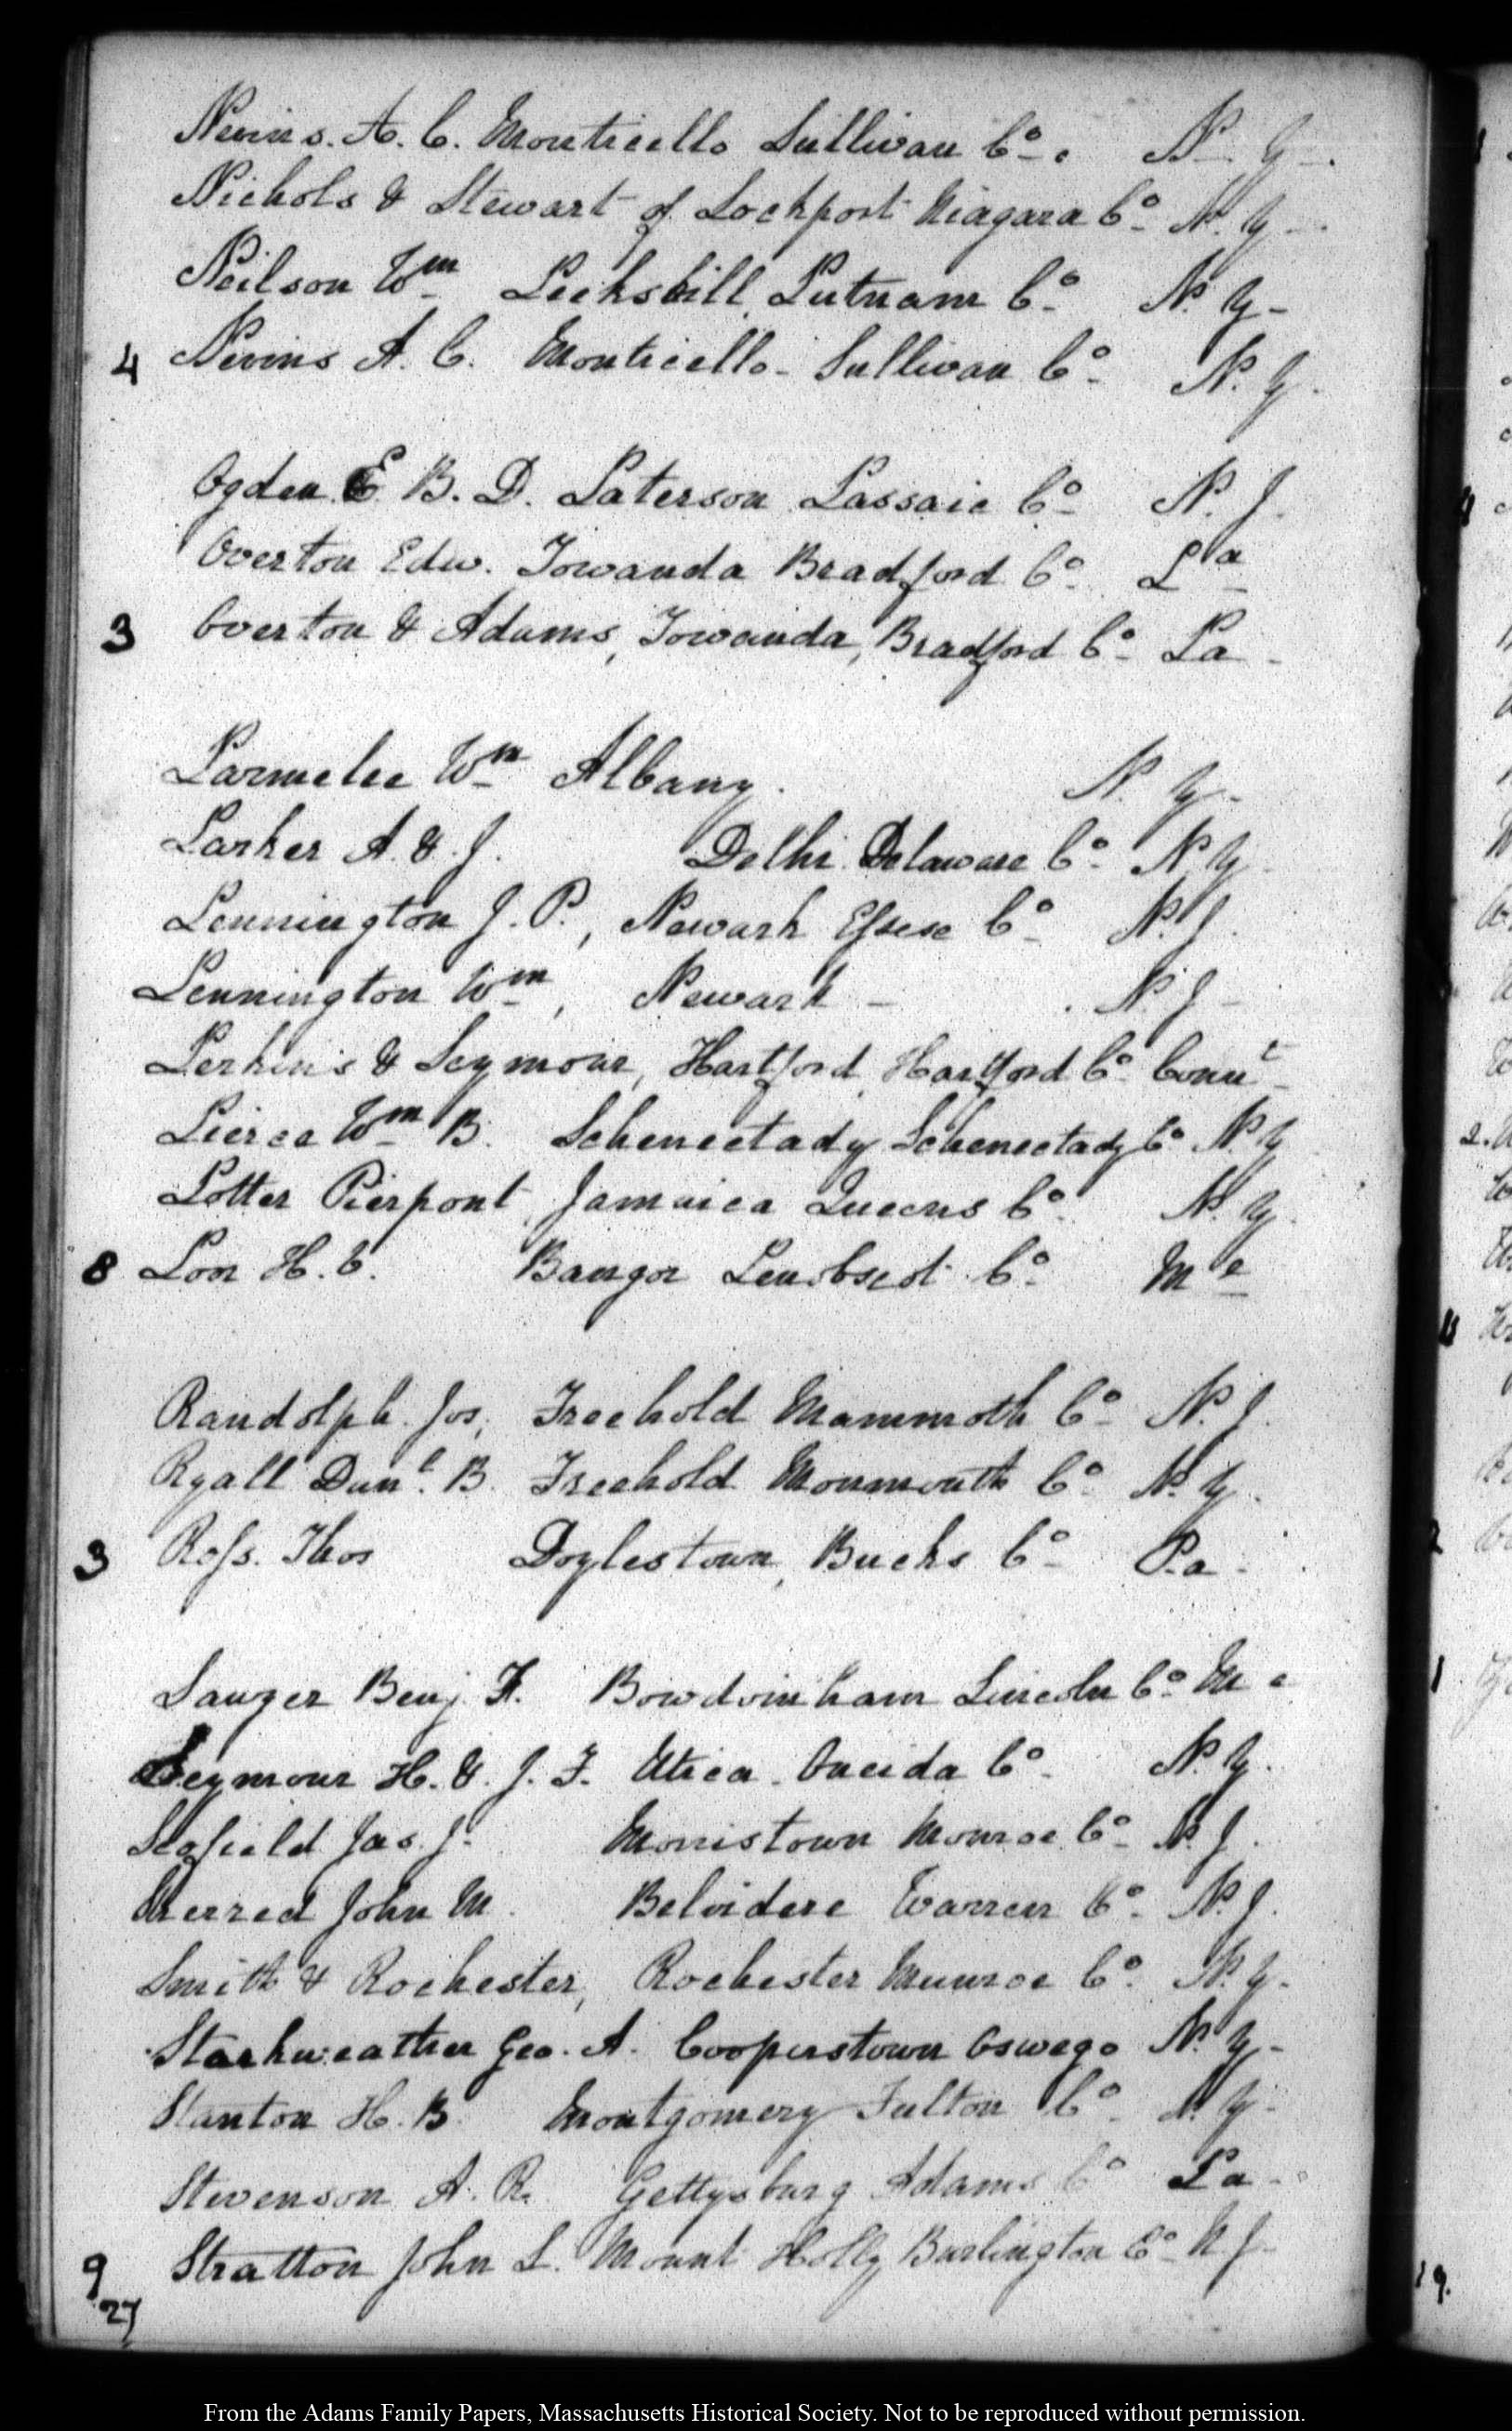 Nevins. A. C. Monticello Sullivan Co. N. Y.
Nichols & Stewart of Lockport Niagara Co. N. Y.
Neilson Wm Peekskill, Putnam Co. N. Y.
4 Nevins A. C. Monticello Sullivan Co. N. Y.
Ogden E. B. D. Paterson Passaic Co. N. J.
Overton Edw. Towanda Bradford Co. Pa
3 Overton & Adams, Towanda, Bradford Co. Pa
Parmelee Wm Albany. N. Y.
Parker A. & J. Delhi Delaware Co. N. Y.
Pennington J. P., Newark Essex Co. N. J.
Pennington Wm, Newark N. J.
Perkins & Seymour, Hartford, Hartford Co. Connt
Pierce Wm B. Schenectady Schenectady Co. N. Y.
Potter Pierpont, Jamaica Queens Co. N. Y.
8 Poor H. V. Bangor Penobscot Co. Me
Randolph. Jos, Freehold Mammoth Co. N. J.
Ryall Danl. B. Freehold Monmouth Co. N. Y.
3 Ross. Thos Doylestown, Bucks Co. Pa
Sawyer Benj. F. Bowdoinham Lincoln Co. Me
Seymour H. & J. F. Utica Oneida Co. N. Y.
Scofield Jas. J. Morristown Monroe Co. N. J.
Sherred John M. Belvidere Warren Co. N. J.
Smith & Rochester, Rochester Munroe Co. N. Y.
Starkweather Geo. A. Cooperstown Oswego N. Y.
Stanton H. B. Montgomery Fulton Co. N. Y.
Stevenson A. R. Gettysburg Adams Co. Pa
9 Stratton John L. Mount Holly Burlington Co. N J.
27
From the Adams Family Papers, Massachusetts Historical Society. Not to be reproduced without permission.